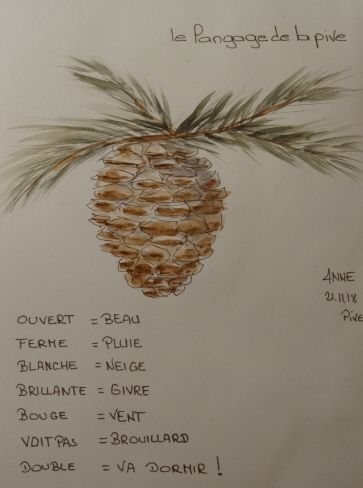 le Langage de la pive
ANNE
21.11.18
Pive
OUVERT = BEAU
FERME = PLUIE
BLANCHE = NEIGE
BRILLANTE = GIVRE
BOUGE = VENT
VOIT PAS = BROUILLARD
DOUBLE = VA DORMIR !